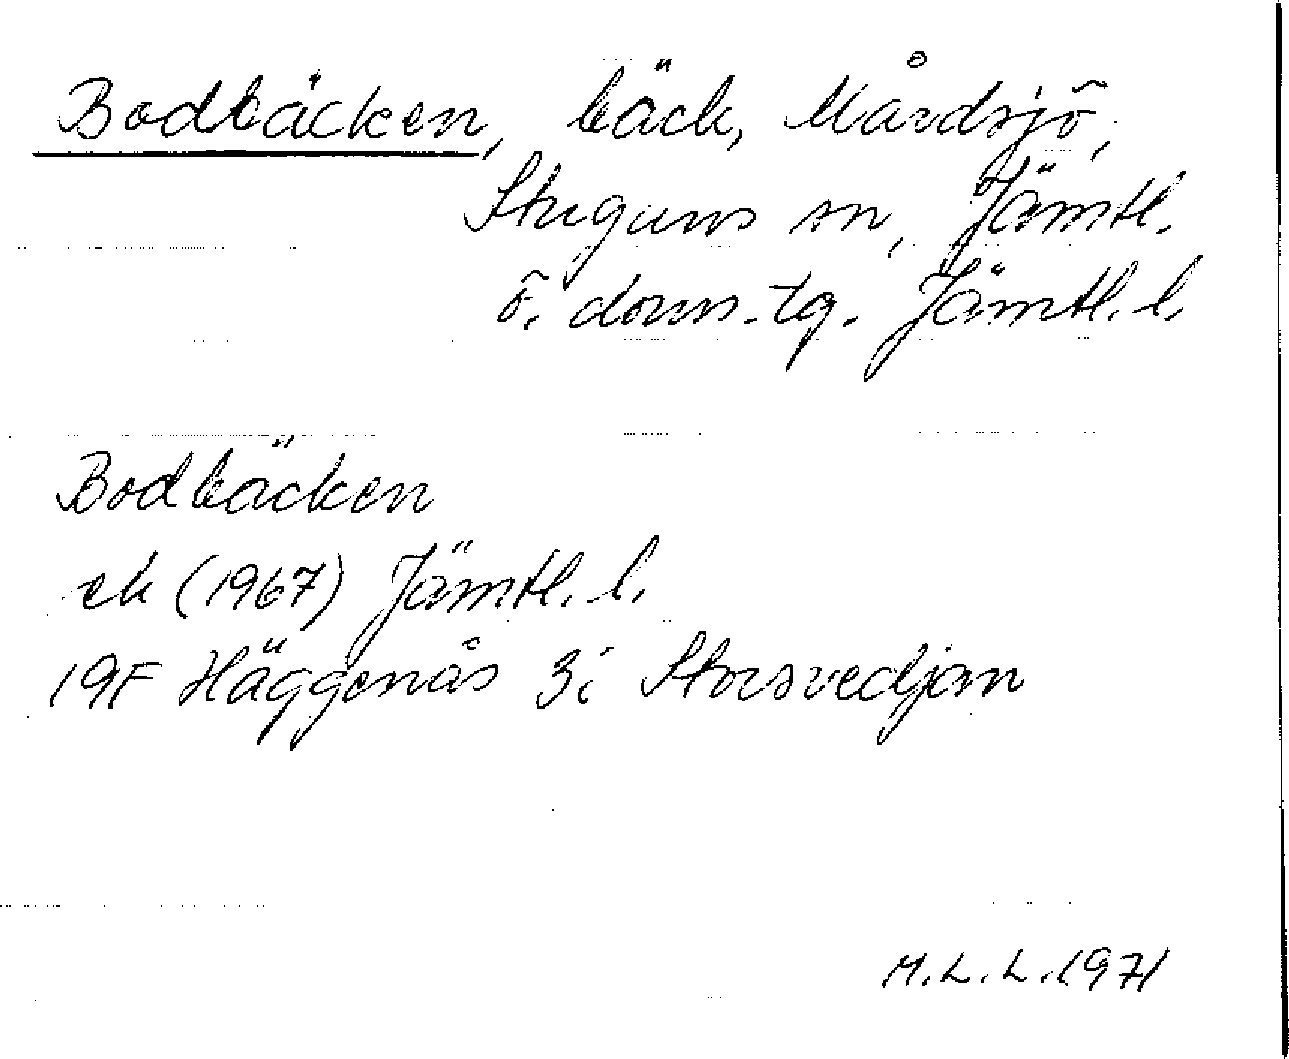 Bodbäcken, bäck, Mårdsjö,
Stuguns sn, Jämtl.
ö. doms.tg. Jämtl. l.
Bodbäcken
ek (1967) Jämtl. l.
19F Häggenås 3i Storsvedjan
M.L.L. 1971